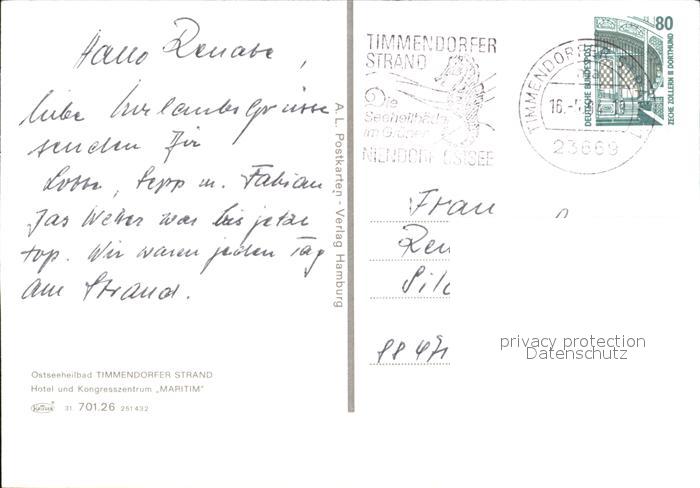 Hallo Renate,
liebe Urlaubsgrüsse
senden Dir
Lotte, Sepp u. Fabian
Das Wetter war bis jetzt
top. Wir waren jeden Tag
am Strand.
Ostseeheilbad TIMMENDORFER STRAND
Hotel und Kongresszentrum „MARITIM"
KRÜGER 31 701.26 251432
A. L. Postkarten - Verlag Hamburg
TIMMENDORFER
STRAND
Die
Seeheilbäder
im Grünen
NIENDORF OSTSEE
TIMMENDORFER
16.
23669
80
DEUTSCHE BUNDESPOST
ZECHE ZOLLERN II DORTMUND
Frau
Ren
privacy protection
Datenschutz